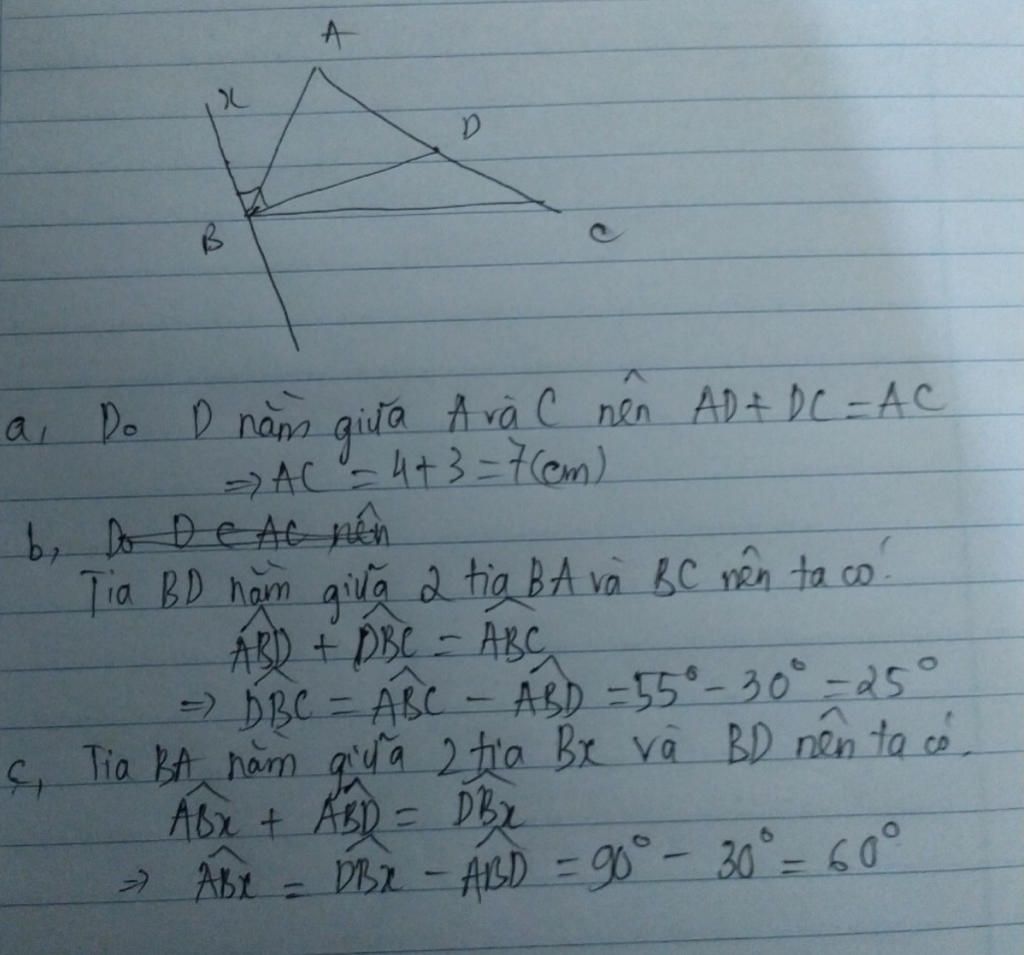 A
x
D
B
C
a, Do D nằm giữa A và C nên AD + DC = AC
=> AC = 4 + 3 = 7 (cm)
b, Do D ∈ AC nên
Tia BD nằm giữa 2 tia BA và BC nên ta có:
ABD̂ + DBĈ = ABĈ
=> DBĈ = ABĈ - ABD̂ = 55° - 30° = 25°
c, Tia BA nằm giữa 2 tia Bx và BD nên ta có.
ABx̂ + ABD̂ = DBx̂
=> ABx̂ = DBx̂ - ABD̂ = 90° - 30° = 60°